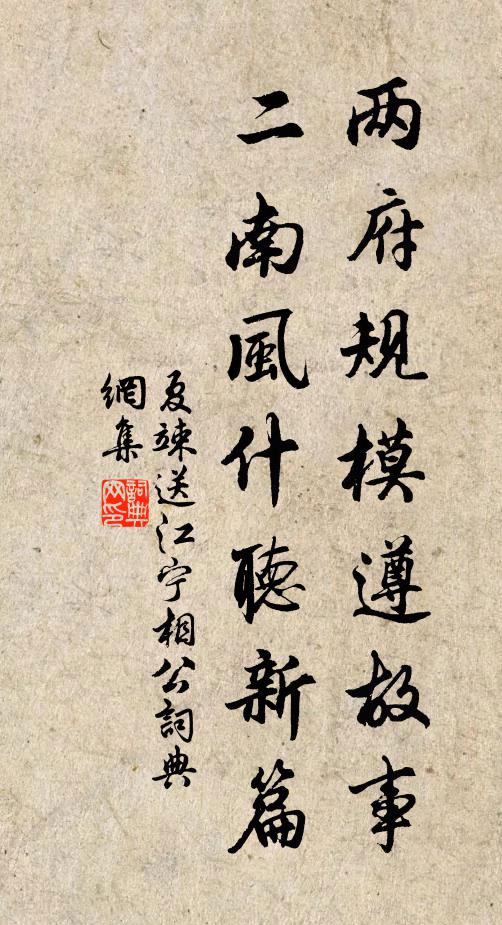 两府规模遵故事
二南風什聽新篇
夏竦送江宁相公詞典
網集
詞典
网印